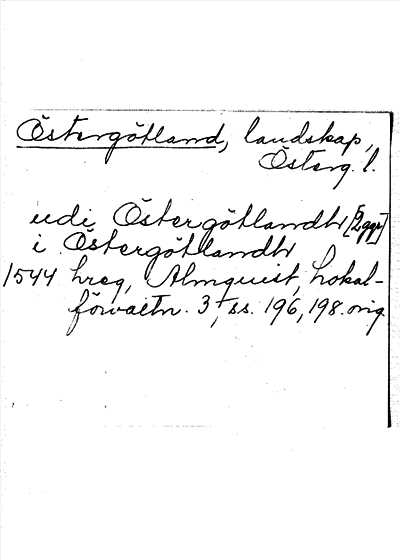 Östergötland, landskap,
Österg. l.
udi Östergötlandh [2 ggr]
i Östergötlandh
1544 hreg, Almquist, Lokal-
förvaltn. 3, ss. 196, 198. orig.